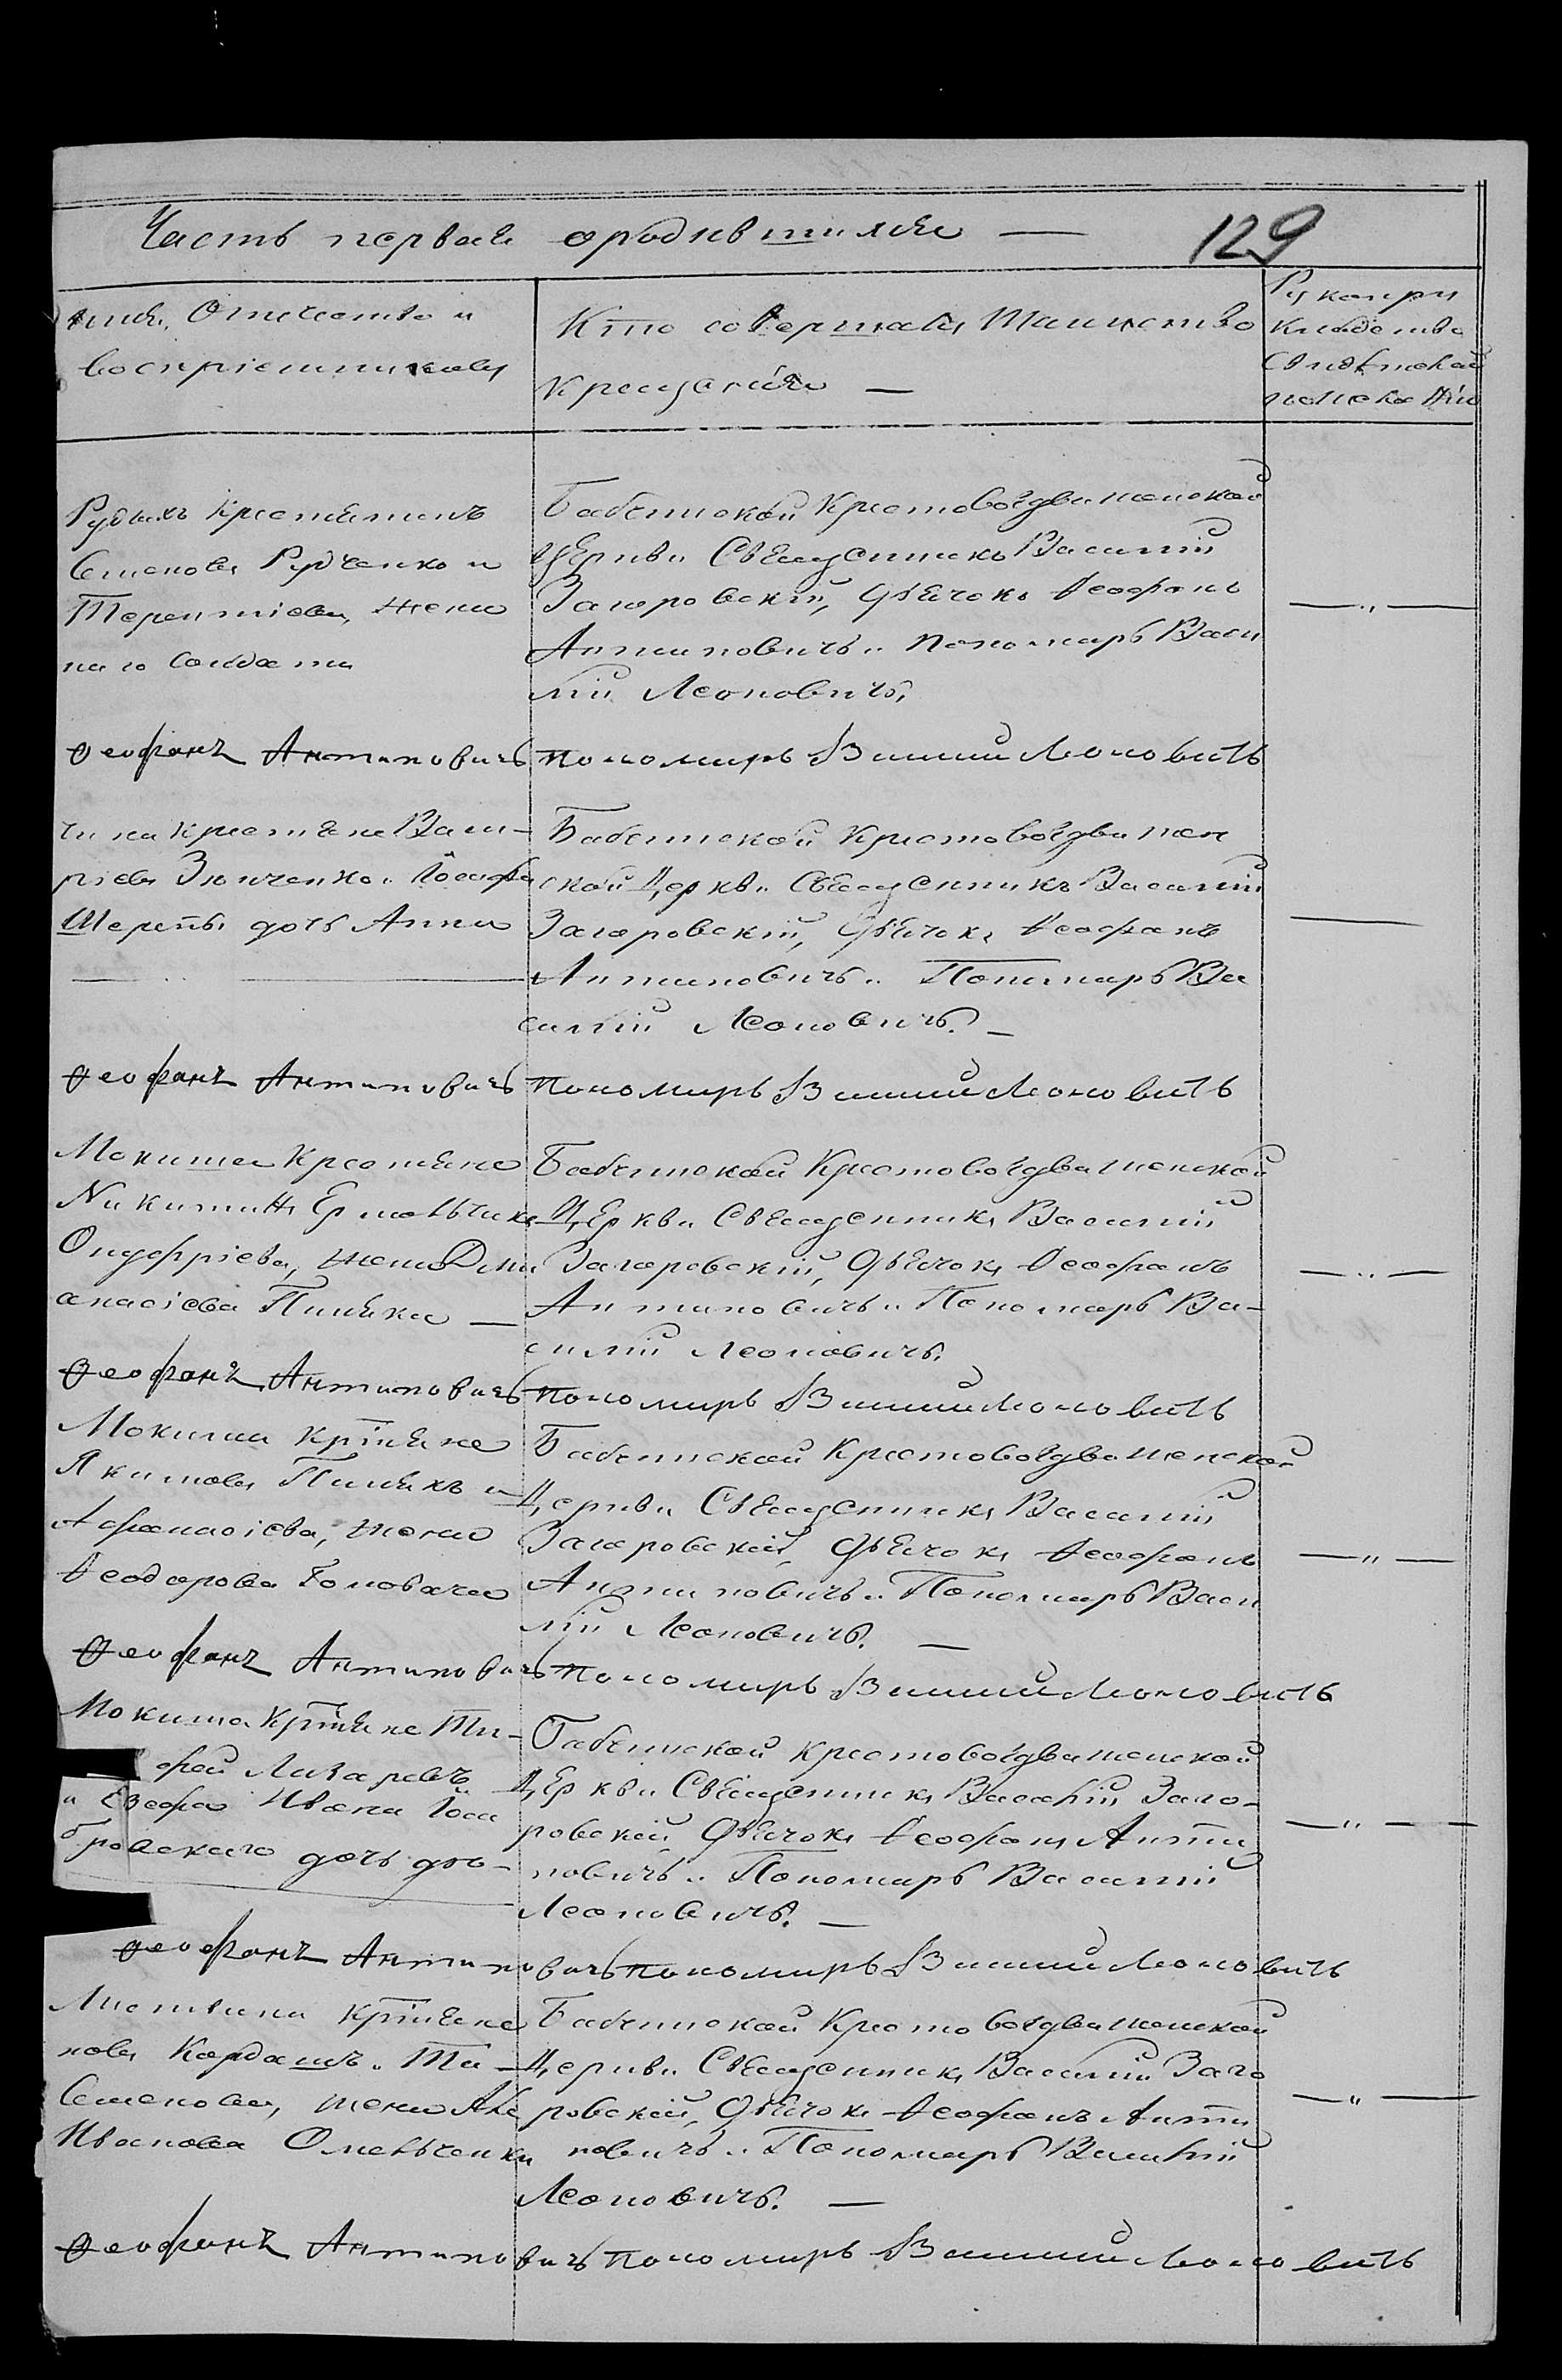 Часть первая ородившихся — 129
имя, Отчество и
воспріемниковъ
Кто совершалъ Таинство
Крещенія —
Рукопри
кладство
Свидѣтелей
пожеланію
Рудыхъ Крестьянинъ
Семеновъ Рудченко и
Терентіева, жена
наго Солдата
Бабенской Крестовоздвиженской
Церкви Священникъ Василій
Загоровскій, Дьячокъ Ѳеофанъ
Антиповичъ и Пономарь Васи
лій Леоновичъ,
Ѳеофанъ Антиповичъ пономарь Василий Леоновичь
на крестьяне Вали-
ріевъ Зинченко и Іосифа
Шерепы дочь Анна
Бабенской Крестовоздвижен
ской Церкви Священникъ Василій
Загоровскій, Дьячокъ Ѳеофанъ
Антиповичъ и Пономарь Ва
силій Леоновичъ. —
Ѳеофанъ Антиповичъ пономарь Василий Леоновичь
Мокиша Крестьяне
Никита Ермольчикъ
Онуфріева, жена Дми
анасіева Пиляка —
Бабенской Крестовоздвиженской
Церкви Священникъ Василій
Загоровскій, Дьячокъ Ѳеофанъ
Антиповичъ и Пономарь Ва-
силій Леоновичъ.
Ѳеофанъ Антиповичъ пономарь Василий Леоновичь
Мокиша кртьяне
Якимовъ Пилякъ и
Афанасіева, жена
Ѳеодорова Головача
Бабенской Крестовоздвиженской
Церкви Священникъ Василій
Загоровскій, Дьячокъ Ѳеофанъ
Антиповичъ и Пономарь Васи
лій Леоновичъ. —
Ѳеофанъ Антиповичъ пономарь Василий Леоновичь
Мокиша Кртьяне Ти-
офей Лазаревъ
и Ивана
бровскаго дочь
Бабенской Крестовоздвиженской
Церкви Священникъ Василій Заго-
ровскій, Дьячокъ Ѳеофанъ Анти
повичъ и Пономарь Василій
Леоновичъ. —
Ѳеофанъ Антиповичъ пономарь Василий Леоновичь
кртьяне
новъ Кардашъ и Та-
Семенова, жена
Иванова Омельченка
Бабенской Крестовоздвиженской
Церкви Священникъ Василій Заго
ровскій, Дьячокъ Ѳеофанъ Анти
повичъ и Пономарь Василій
Леоновичъ. —
Ѳеофанъ Антиповичъ пономарь Василий Леоновичь